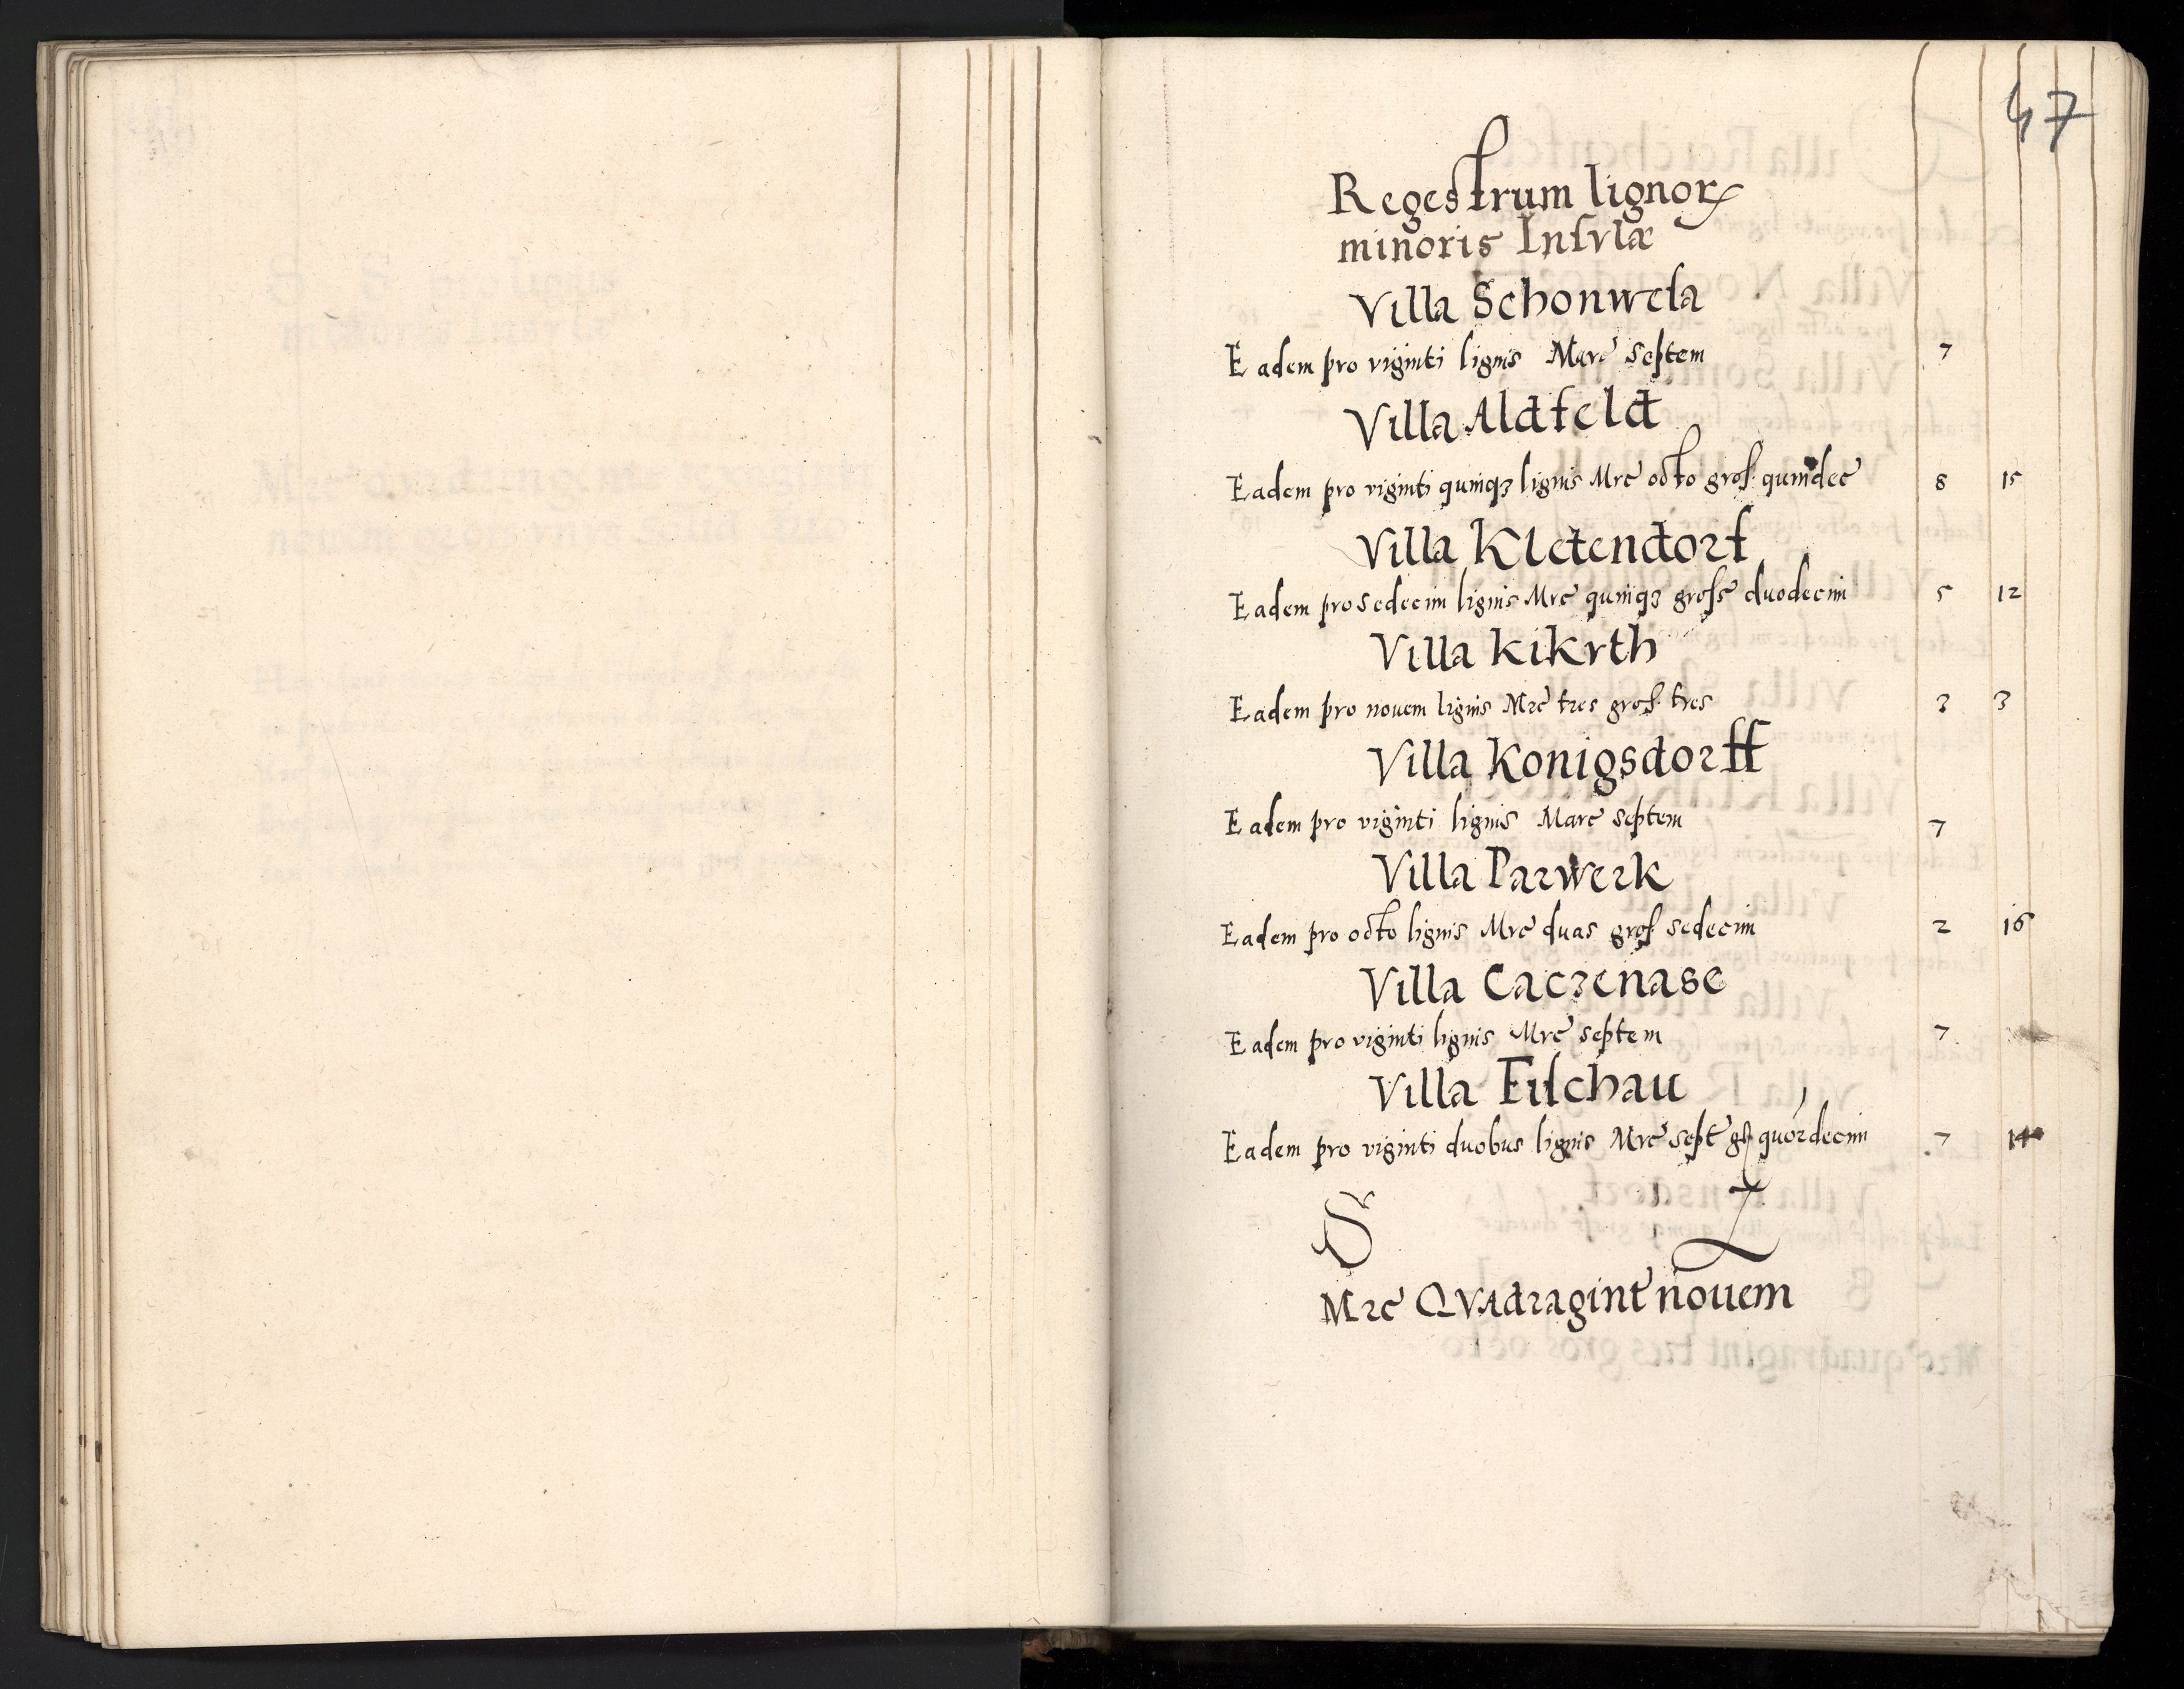 47
Regestrum lignorꝝ
minoris Insvlæ
Villa Schonwesa
Eadem pro viginti lignis Marc septem 7
Villa Aldfeld
Eadem pro viginti quinqꝫ lignis Mrc octo gros quindec 8 15
Villa Kletendorf
Eadem pro sedecim lignis Mrc quinqꝫ gross duodecim 5 12
Villa Kikrth
Eadem pro novem lignis Mrc tres gros tres 3 3
Villa Konigsdorff
Eadem pro viginti lignis Marc septem 7
Villa Parwerk
Eadem pro octo lignis Mrc duas gros sedecim 2 16
Villa Caczenase
Eadem pro viginti lignis Mrc septem 7
Villa Fischau
Eadem pro viginti duobus lignis Mrc sept gs quordecim 7 14
S
Mrc Qvadragint nouem